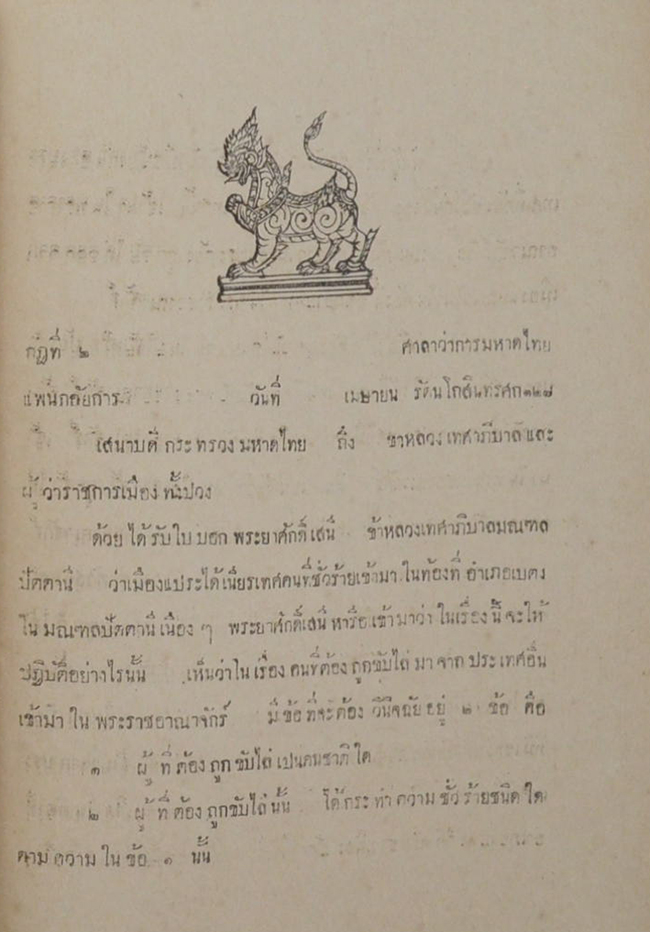 กฎที่ ๒ ศาลาว่าการมหาดไทย
แพนกอัยการ วันที่ เมษายน รัตนโกสินทรศก๑๒๗
เสนาบดี กระทรวงมหาดไทย ถึง ข้าหลวงเทศาภิบาลและ
ผู้ว่าราชการเมืองทั้งปวง
ด้วยได้รับใบบอก พระยาศักดิ์เสนี ข้าหลวงเทศาภิบาลมณฑล
ปัตตานี ว่าเมืองแประได้เนียรเทศคนที่ชั่วร้ายเข้ามาในท้องที่ อำเภอเบตง
ในมณฑลปัตตานีเนือง ๆ พระยาศักดิ์เสนี หารือเข้ามาว่า ในเรื่องนี้จะให้
ปฏิบัติอย่างไรนั้น เห็นว่าในเรื่อง คนที่ต้องถูกขับไล่มาจากประเทศอื่น
เข้ามาในพระราชอาณาจักร์ มีข้อที่จะต้องวินิจฉัยอยู่ ๒ ข้อ คือ
๑ ผู้ที่ต้องถูกขับไล่เปนคนชาติใด
๒ ผู้ที่ต้องถูกขับไล่นั้น ได้กระทำความชั่วร้ายชนิดใด
ตามความในข้อ ๑ นั้น